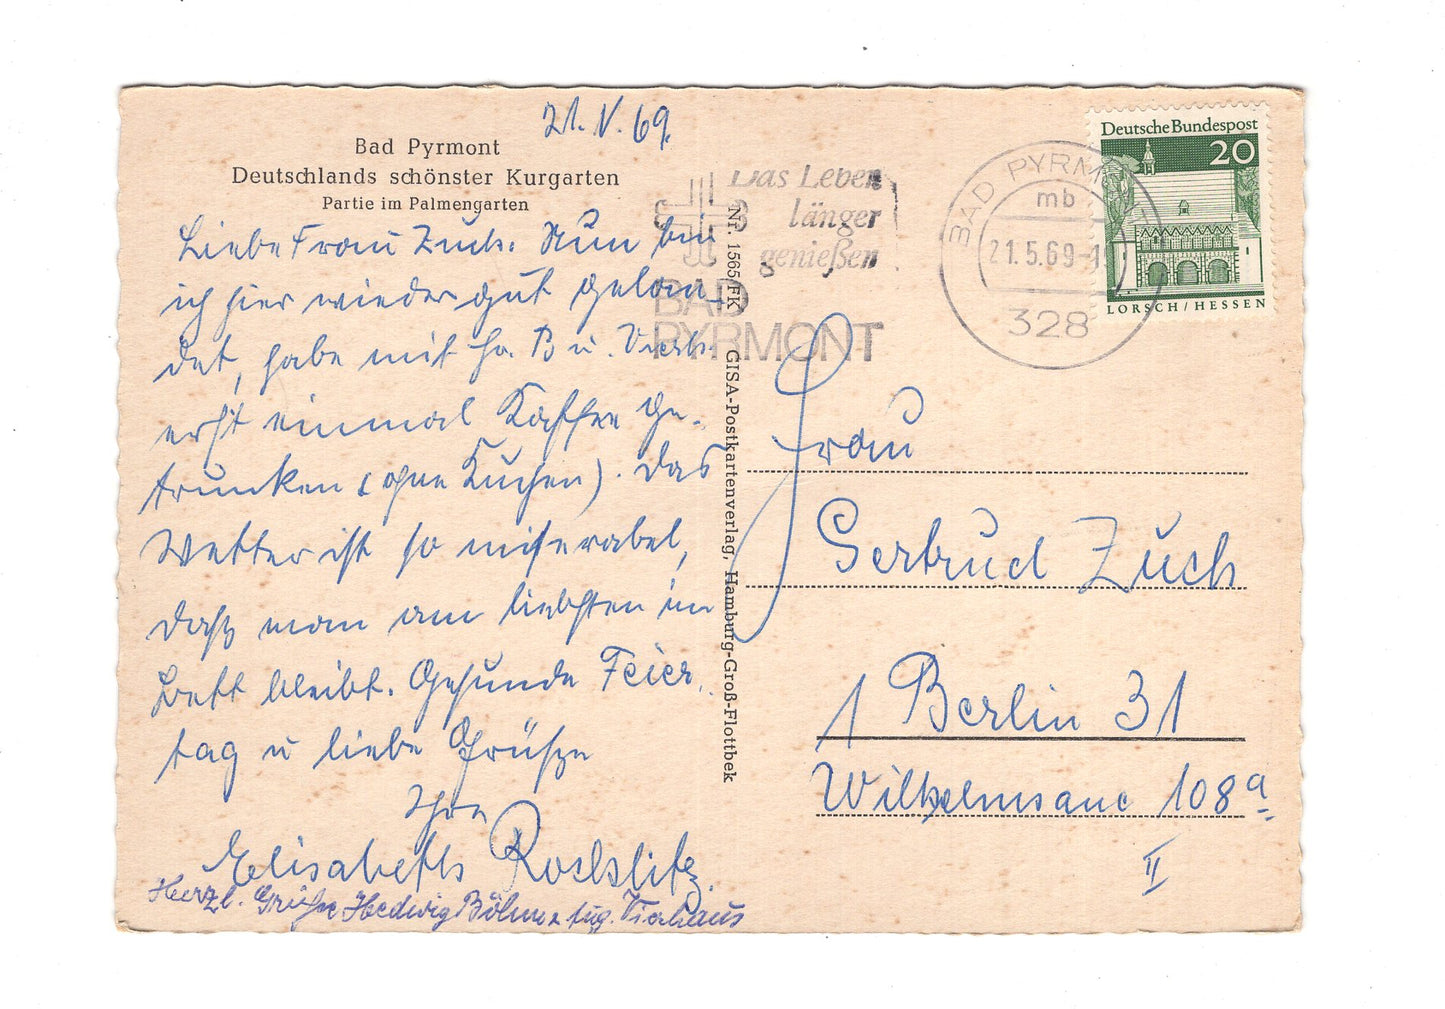 21.V.69.
Bad Pyrmont
Deutschlands schönster Kurgarten
Partie im Palmengarten
Liebe Frau Zuch. Nun bin
ich hier wieder gut gelan-
det, habe mit Fr. B u. Vierh.
erst einmal Kaffee ge-
trunken (ohne Kuchen). Das
Wetter ist so miserabel,
daß man am liebsten im
Bett bleibt. Gesunde Feier-
tag u liebe Grüße
Ihre
Elisabeth
Herzl. Grüße Hedwig Böhme Aug. Vierhaus
Nr. 1565/FK GISA-Postkartenverlag, Hamburg-Groß-Flottbek
Das Leben
länger
genießen
BAD
PYRMONT
BAD PYRMONT
mb
21.5.69
328
Deutsche Bundespost
20
LORSCH/HESSEN
Frau
Gertrud Zuch
1 Berlin 31
Wilhelmsaue 108a
II